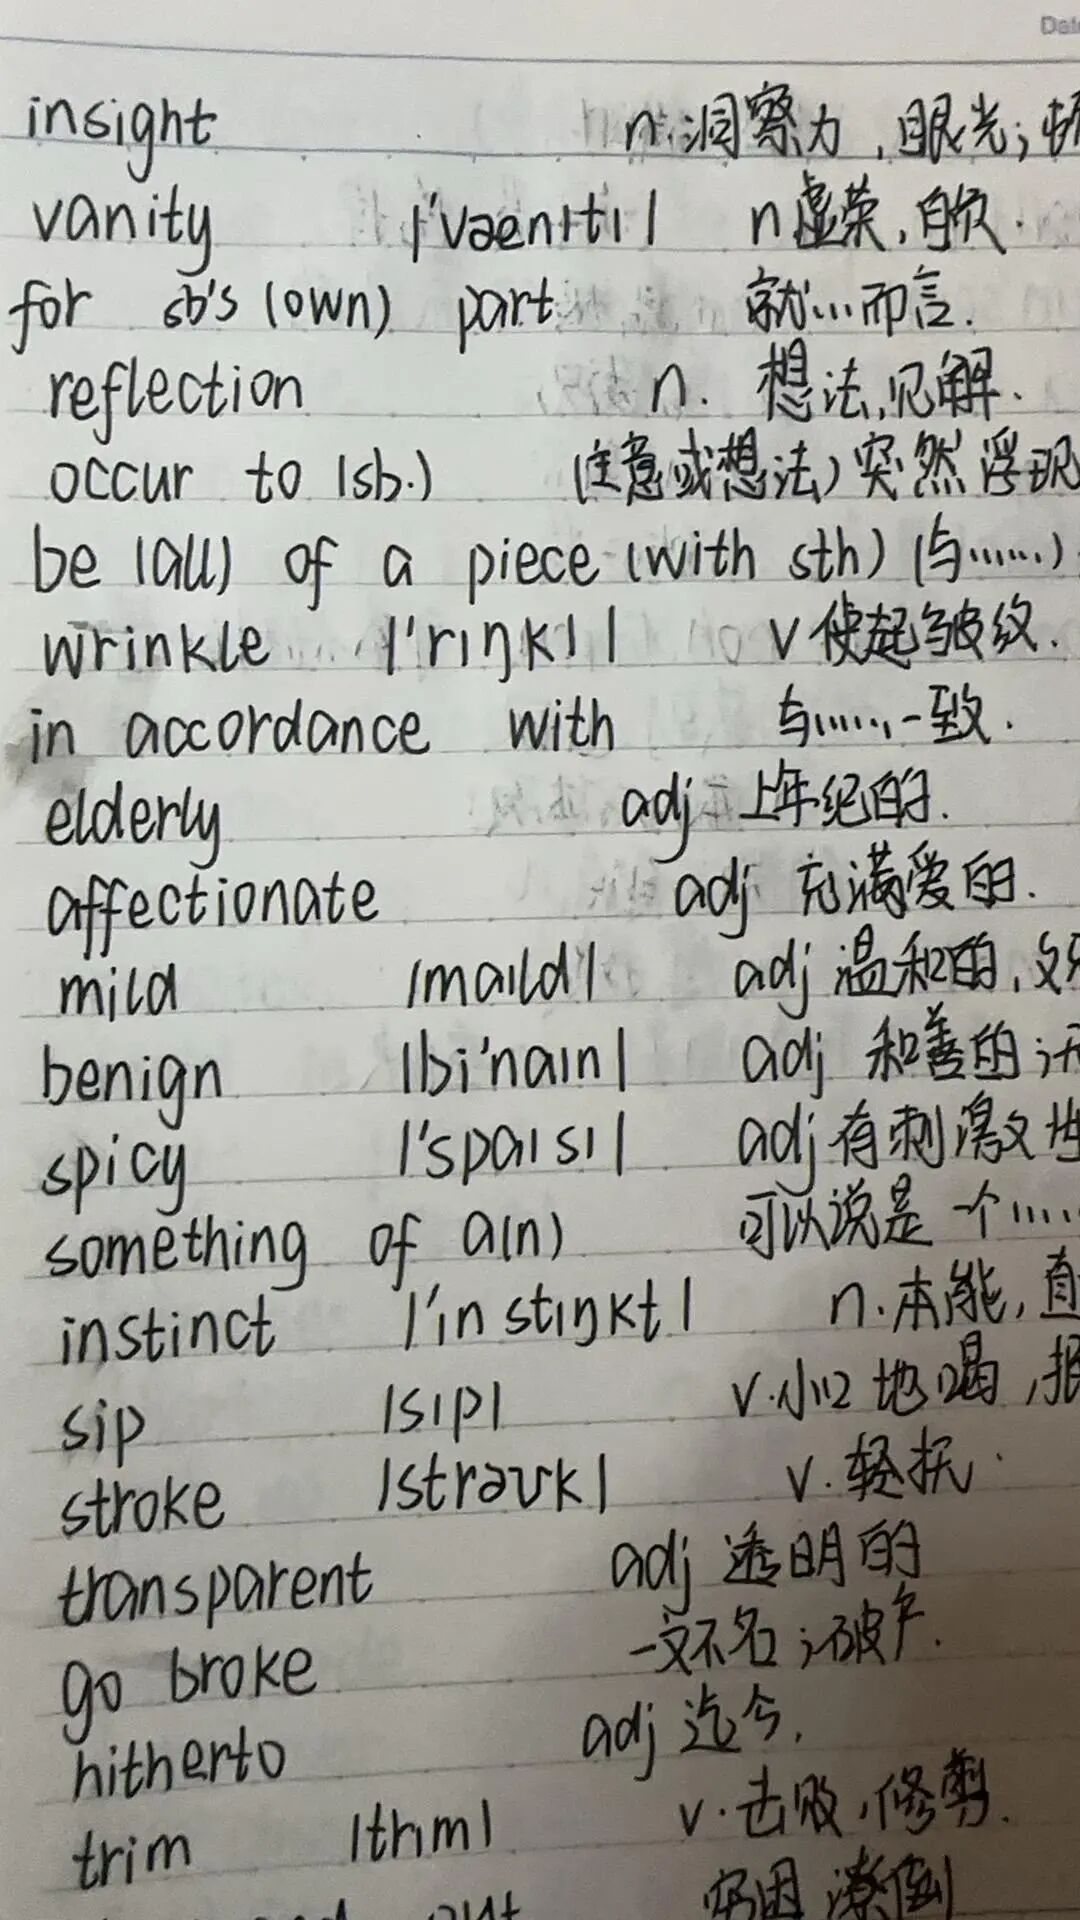 Date
insight n. 洞察力,眼光;
vanity |'vaenɪtɪ| n 虚荣,自负.
for sb's (own) part 就...而言.
reflection n. 想法,见解.
occur to (sb.) (主意或想法)突然浮现
be (all) of a piece (with sth) (与......)
wrinkle |'rɪŋkl| v 使起皱纹.
in accordance with 与......一致.
elderly adj 上年纪的.
affectionate adj 充满爱的.
mild |maɪld| adj 温和的,
benign |bɪ'naɪn| adj 和善的;
spicy |'spaɪsɪ| adj 有刺激性
something of a(n) 可以说是一个.....
instinct |'ɪnstɪŋkt| n. 本能,直
sip |sɪp| v. 小口地喝,抿
stroke |strəʊk| v. 轻抚.
transparent adj 透明的
go broke 一文不名;破产.
hitherto adj 迄今.
trim |trɪm| v. 击败,修剪.
out 穷困潦倒